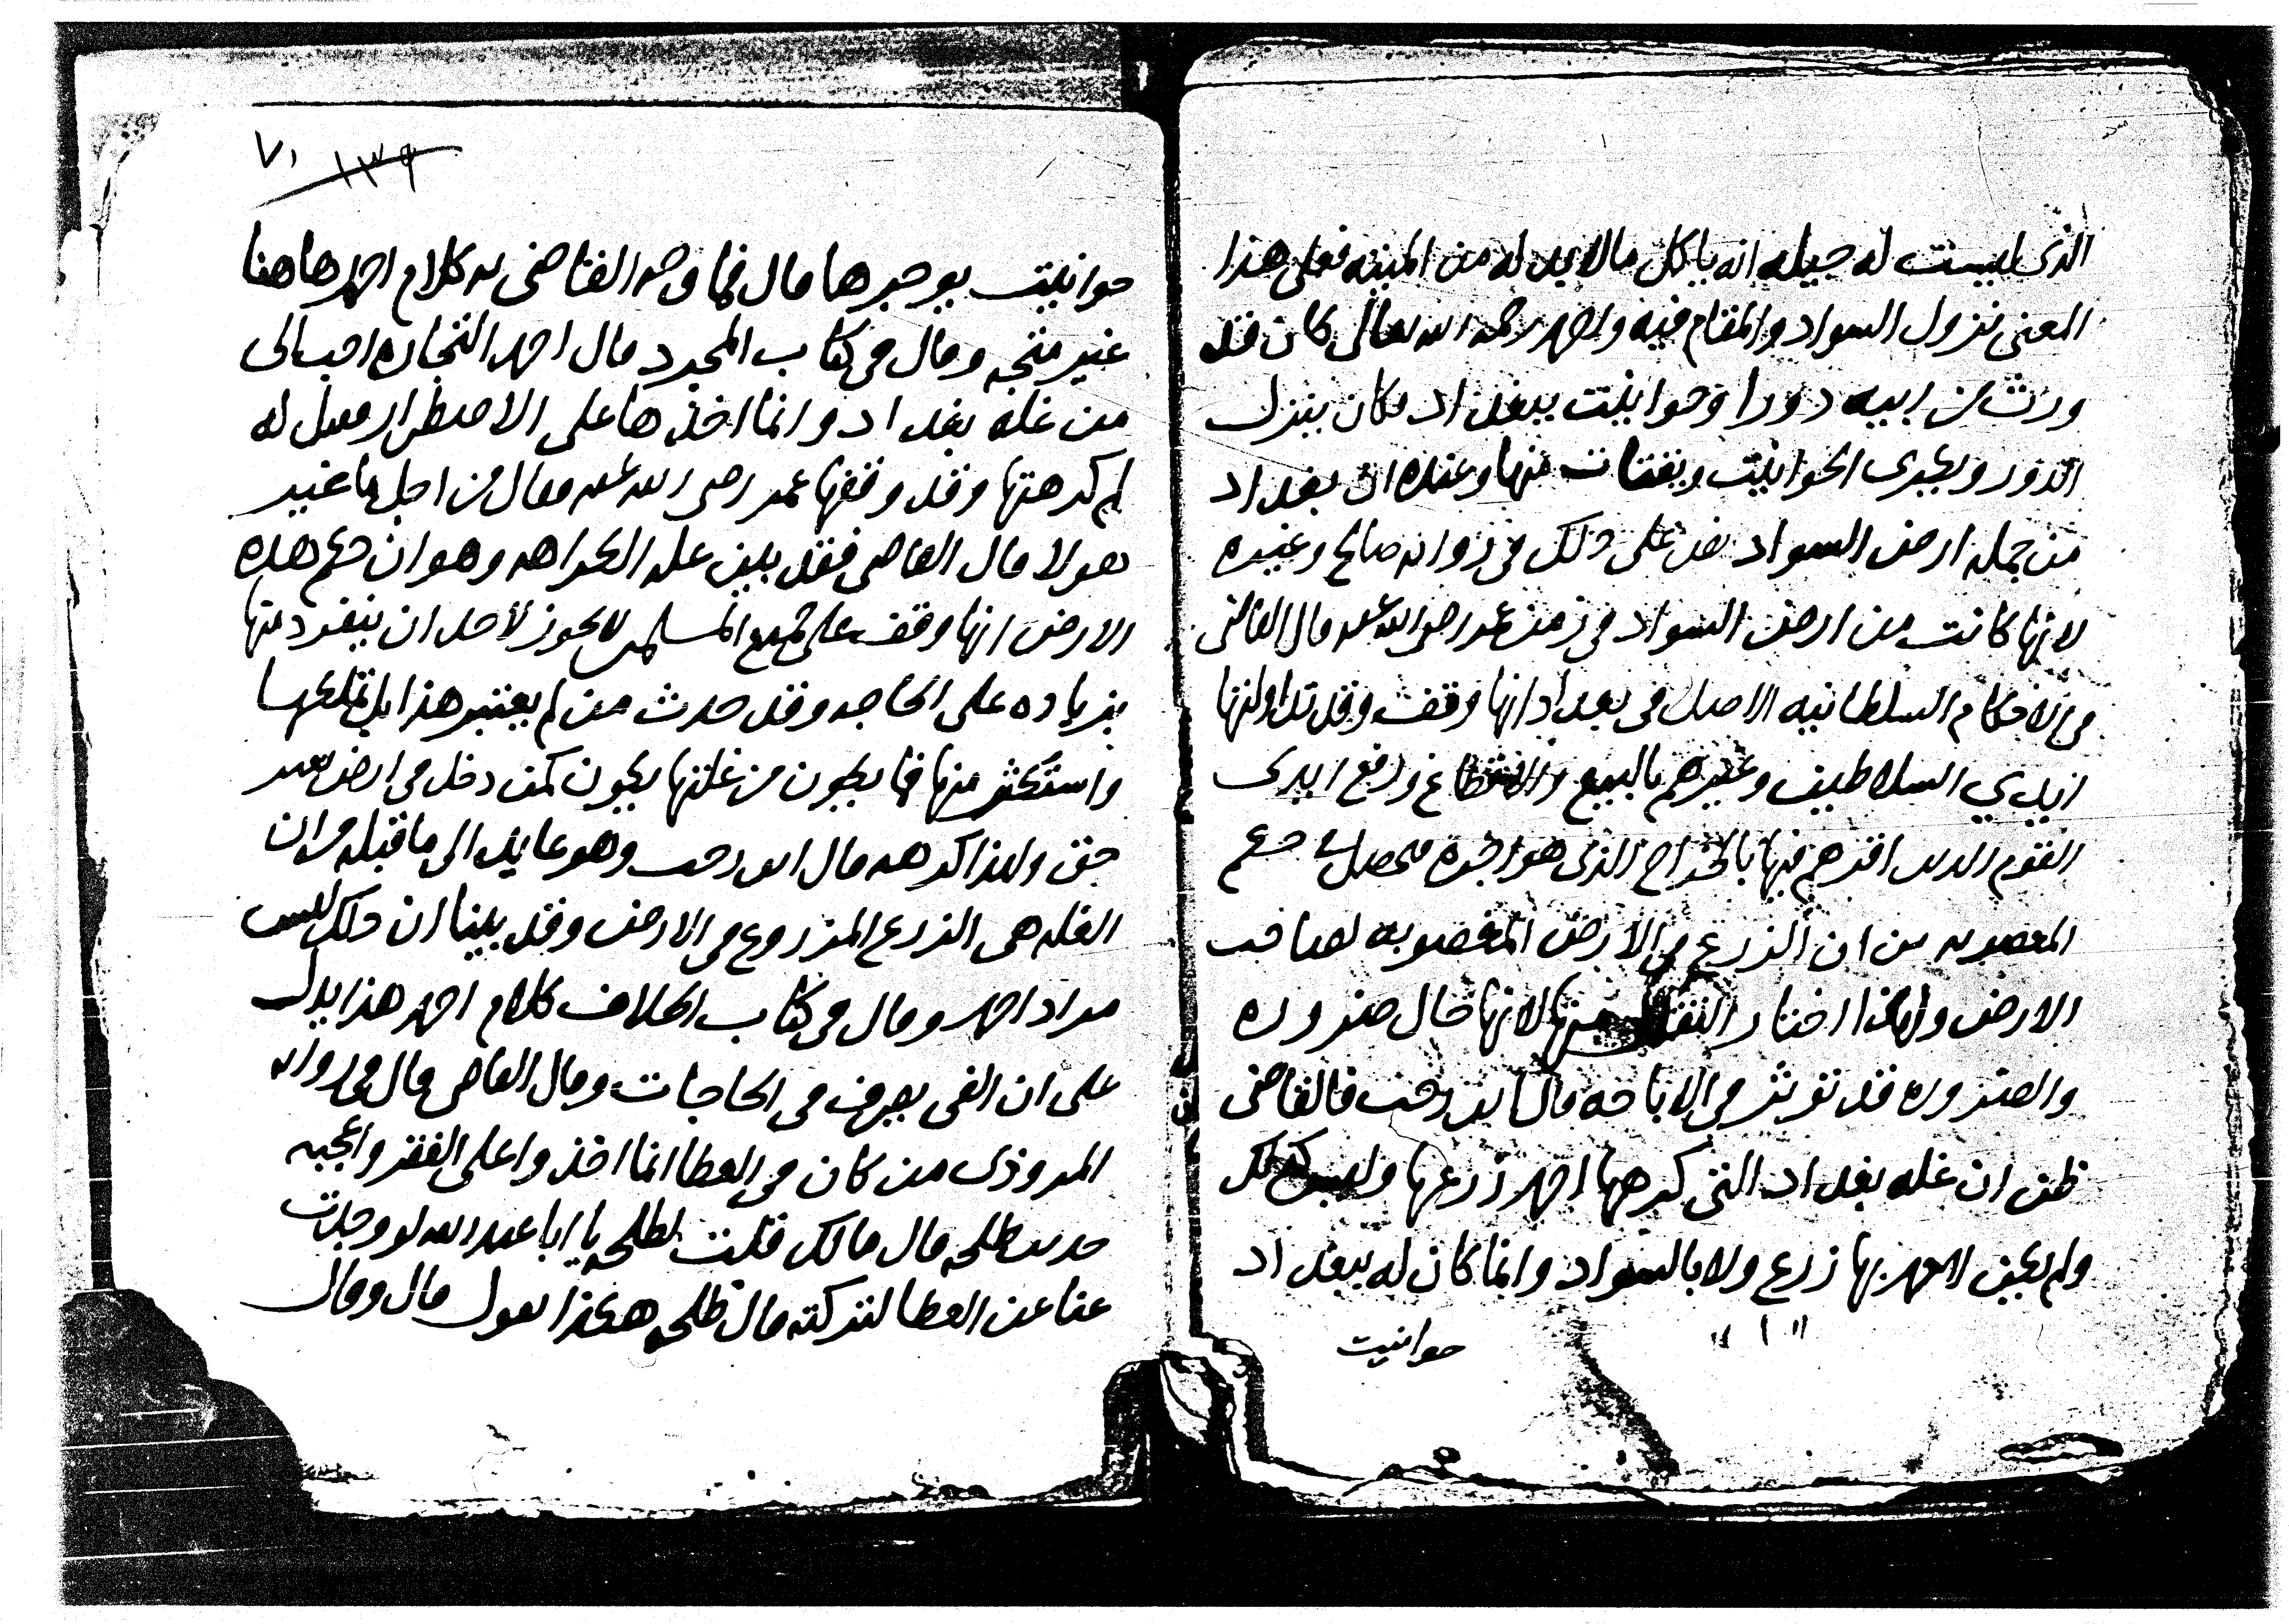 الذي ليست له حيله انه ياكل مالابد له من الميته فعلى هذا
المعنى نزول السواد والمقام فيه واحمد رحمه الله تعالى كان قد
ورث من ابيه دورا وحوانيت ببغداد فكان ينزل
الدور ويكرى الحوانيت ويقتات منها وعنده ان بغداد
من جمله ارض السواد نص على ذلك في روايه صالح وغيره
لانها كانت من ارض السواد في زمن عمر رضي الله عنه قال القاضى
في الاحكام السلطانيه الاصل في بغداد انها وقف وقد تداولتها
ايدي السلاطين وغيرهم بالبيع والاقتطاع ورفع ايدى
القوم الدىں اقرهم فيها بالخراج الذي هو اجره فحصل حكم
المغصوبه من ان الزرع في الارض المغصوبه لصاحب
الارض ولهذا اختار التقلل منها لانها حال ضروره
والضروره قد تؤثر في الاباحه قال ابن رجب فالقاضى
ظن ان غله بغداد التي كرهها احمد زرعها وليس كذلك
ولم يكن لاحمد بها زرع ولا بالسواد وانما كان له ببغداد
حوانيت
٧١ ١٣٩
حوانيت يوجرها قال فما وجه القاضى به كلام احمد هاهنا
غير متجه وقال في كتاب المجرد قال احمد التجاره احب الى
من غله بغداد وانما اخذها على الاضطرار فقيل له
لم كرهتها وقد وقفها عمر رضى الله عنه فقال من اجل ما غير
هولا قال القاضى فقد بين عله الكراهه وهو ان حكم هذه
الارض انها وقف على جميع المسلمين لا يجوز لاحد ان ينفرد منها
بزياده على الحاجه وقد حدث من لم يعتبر هذا بل تملكها
واستكثر منها فما يكون من غلتها يكون كمن دخل في ارض بغير
حق ولهذا كرهه قال ابن رجب وهو عايد الى ما قبله من ان
الغله هي الزرع المزروع في الارض وقد بينا ان ذلك ليس
مراد احمد وقال في كتاب الخلاف كلام احمد هذا يدل
على ان الفى يصرف في الحاجات وقال القاضى قال في روايه
المروذى من كان في العطا انما اخذوا على الفقر واعجبه
حديث طلحه قال مالك قلت لطلحه يا ابا عبد الله لو وجدت
عنا عن العطا لتركته قال طلحه هكذا نقول قال وقال